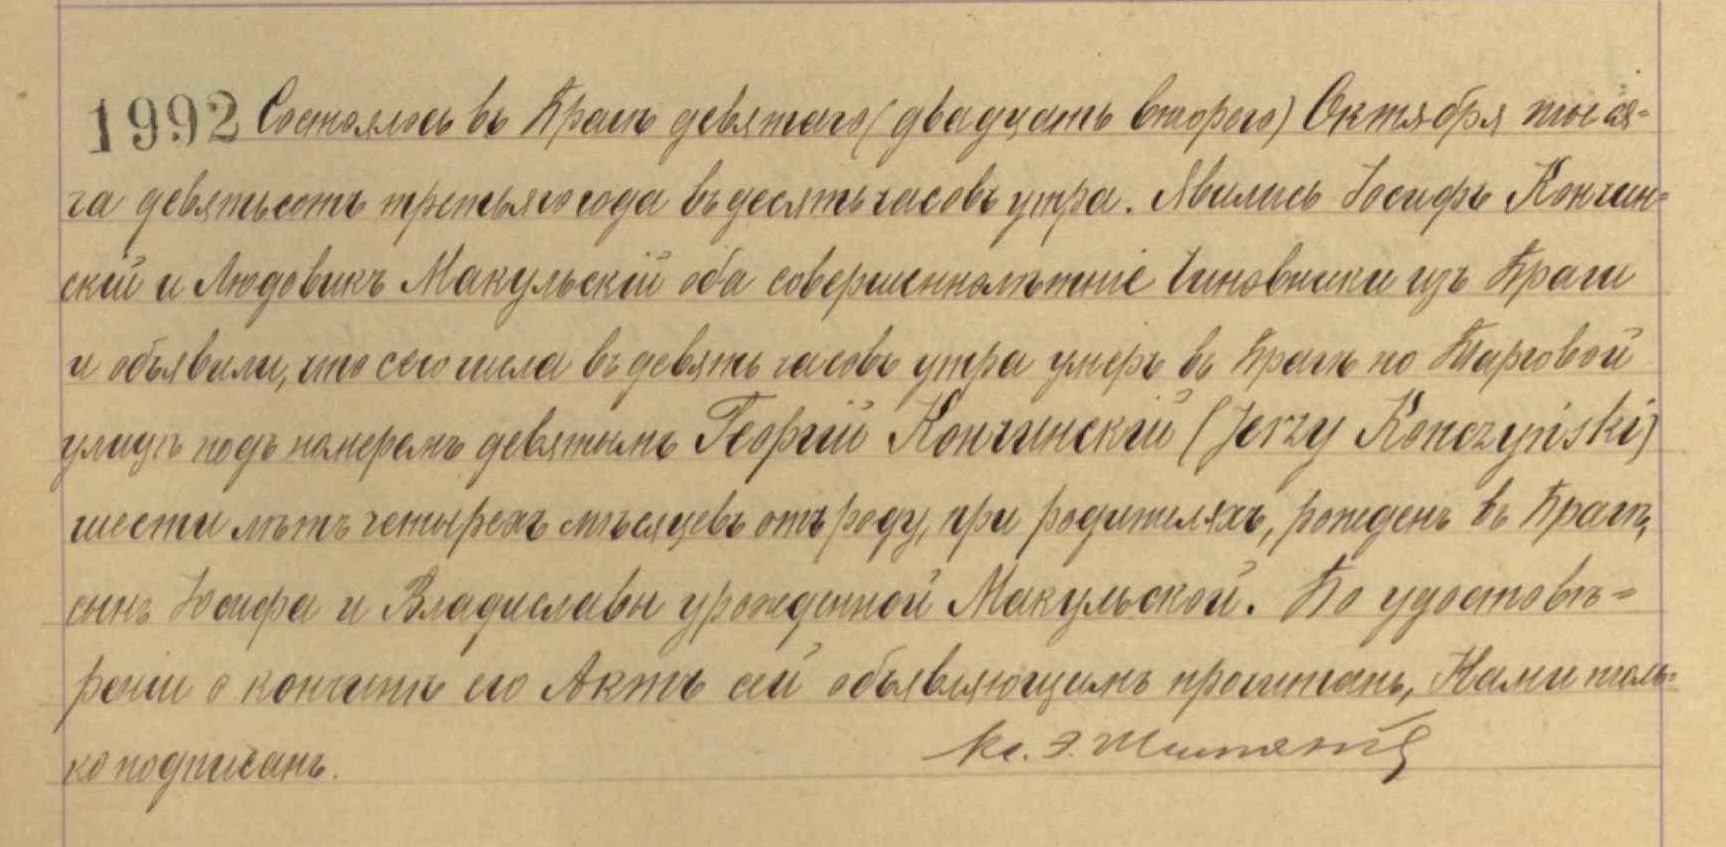 1992 Состоялось въ Прагѣ девятаго (двадцать втораго) Октября тыся-
ча девятьсотъ третьяго года въ десять часовъ утра. Явились Іосифъ Кончин-
скій и Людовикъ Макульскій оба совершеннолѣтніе чиновники изъ Праги
и объявили, что сего числа въ девять часовъ утра умеръ въ Прагѣ по Тарговой
улицѣ подъ номеромъ девятымъ Георгій Кончинскій (Jerzy Konczyński)
шести лѣтъ четырехъ мѣсяцевъ отъ роду, при родителяхъ, рожденъ въ Прагѣ,
сынъ Іосифа и Владиславы урожденной Макульской. По удостовѣ-
реніи о кончинѣ его Актъ сей объявляющимъ прочитанъ, Нами толь-
ко подписанъ.
Кс. Э.